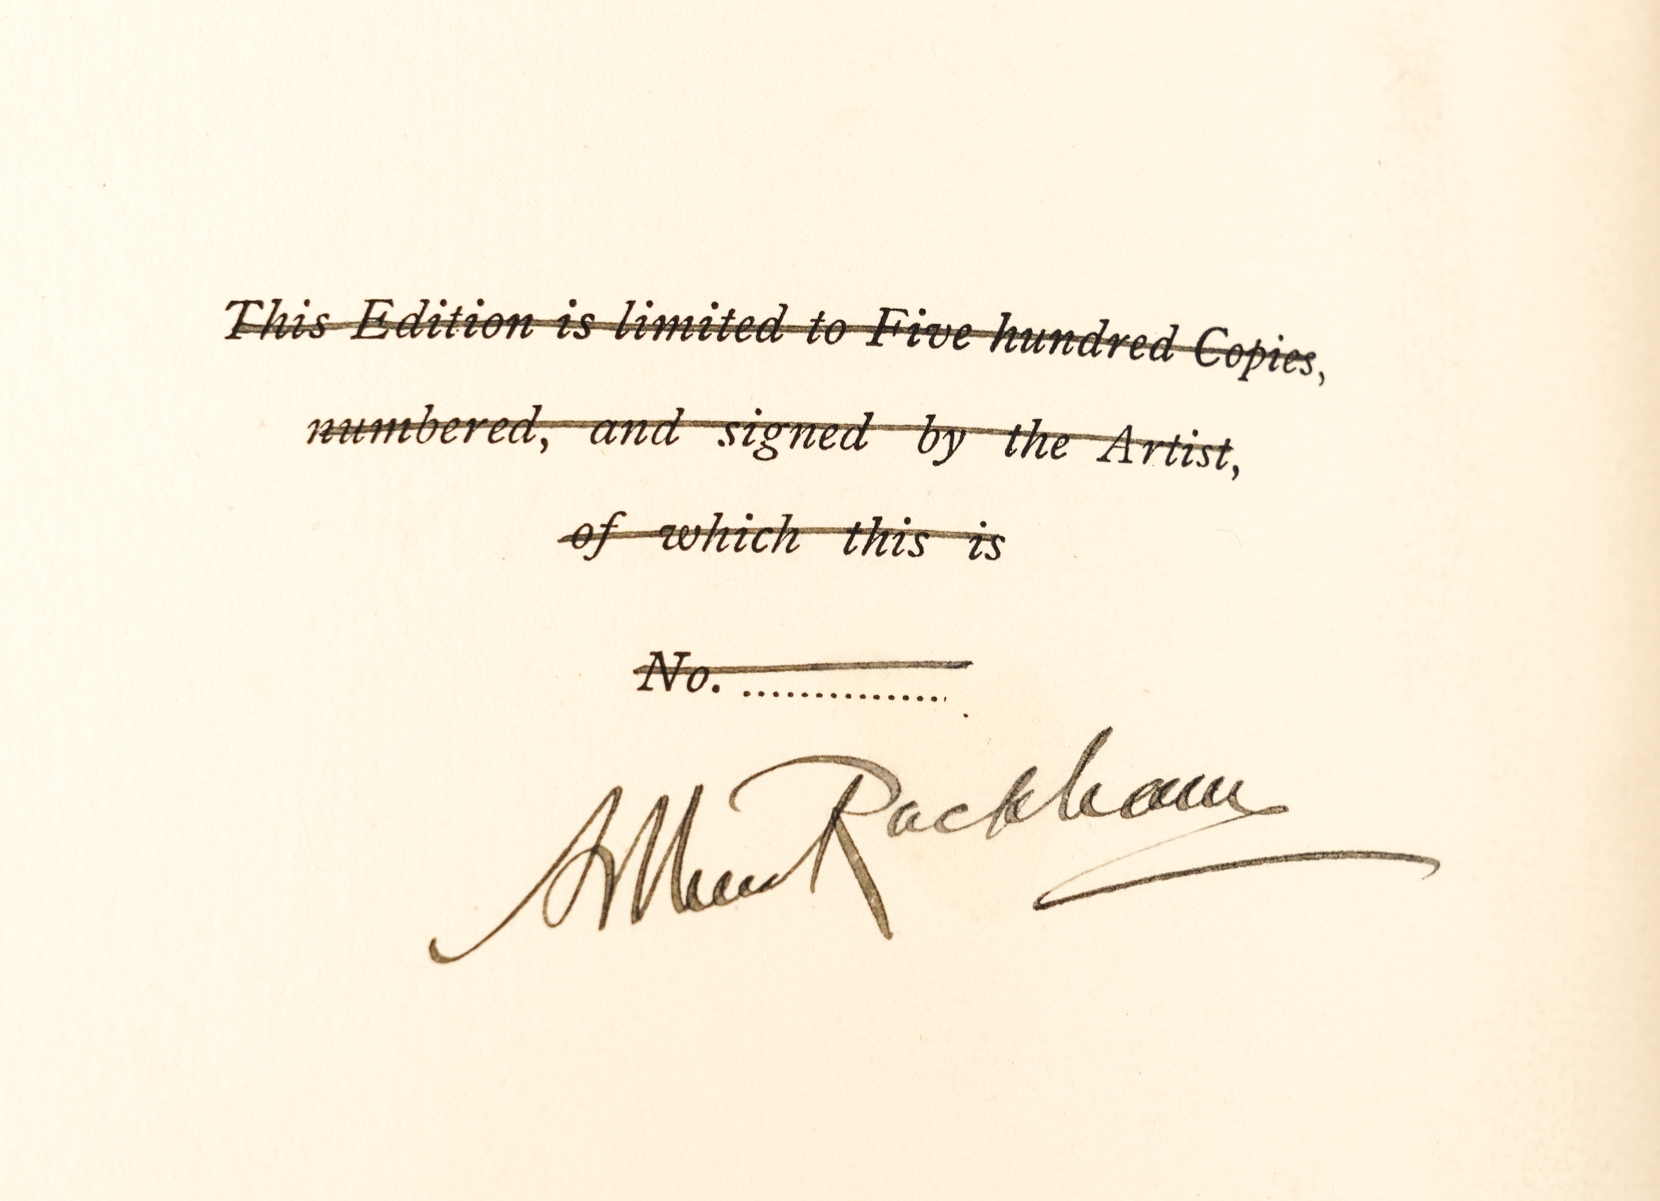 This Edition is limited to Five hundred Copies,
numbered, and signed by the Artist,
of which this is
No. ..................
Arthur Rackham